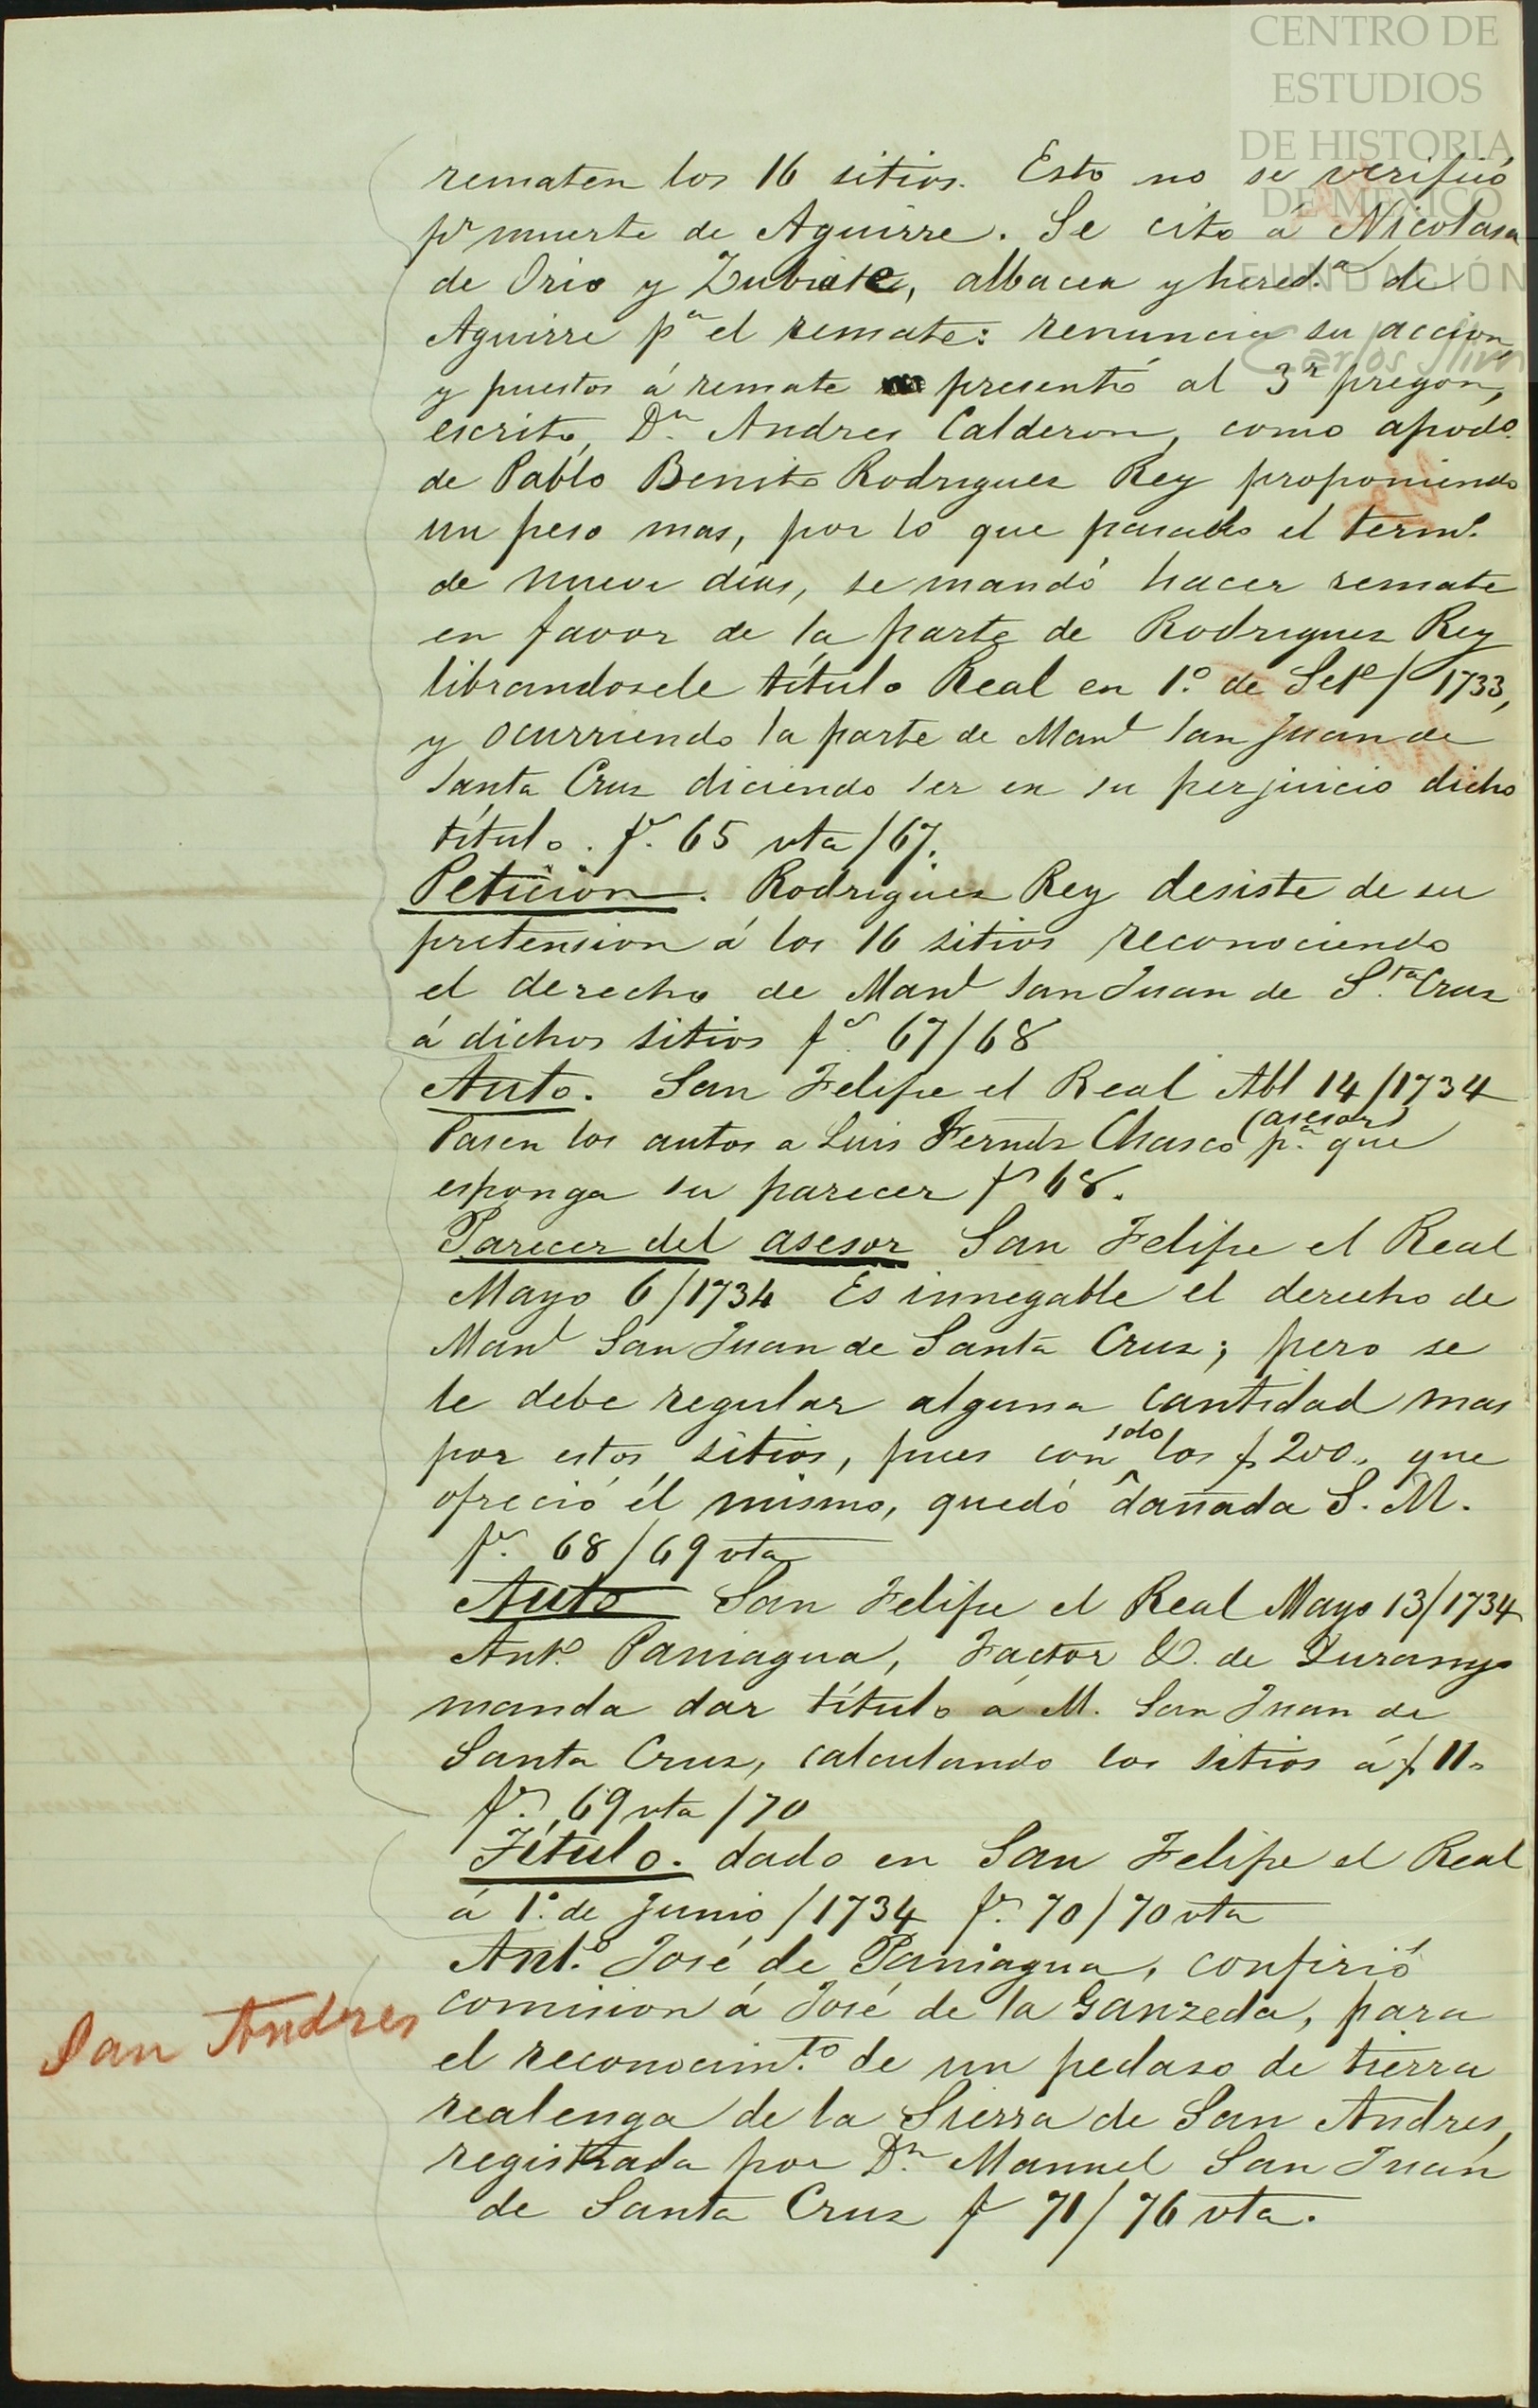 CENTRO DE
ESTUDIOS
DE HISTORIA
DE MEXICO
FUNDACIÓN
Carlos Slim
rematen los 16 sitios. Esto no se verificó
pr muerte de Aguirre. Se cito á Nicolasa
de Orio y Zubiate, albacea y hered.a de
Aguirre pa el remate: renuncia su accion,
y puestos á remate presentó al 3r pregon,
escrito, Dn. Andres Calderon, como apodo.
de Pablo Benito Rodriguez Rey proponiendo
un peso mas, por lo que pasado el termo.
de nueve dias, se mandó hacer remate
en favor de la parte de Rodriguez Rey
librandosele título Real en 1.º de Sete/1733,
y ocurriendo la parte de Manl San Juan de
Santa Cruz diciendo ser en su perjuicio dicho
título. fs. 65 vta/67.
Peticion. Rodriguez Rey desiste de su
pretension á los 16 sitios reconociendo
el derecho de Manl San Juan de S.ta Cruz
á dichos sitios fs. 67/68
Auto. San Felipe el Real Abl 14/1734
Pasen los autos a Luis Ferndz Chasco (asesor) pa. que
esponga su parecer fs 68.
Parecer del asesor San Felipe el Real
Mayo 6/1734 Es innegable el derecho de
Manl San Juan de Santa Cruz; pero se
le debe regular alguna cantidad mas
por estos sitios, pues con solo los $ 200,, que
ofreció él mismo, quedó dañada S. M.
fs. 68/69 vta
Auto San Felipe el Real Mayo 13/1734
Anto. Paniagua, Factor O. de Durango
manda dar título á M. San Juan de
Santa Cruz, calculando los sitios á $ 11,,
fs. 69 vta/70
Título. dado en San Felipe el Real
á 1.º de Junio/1734 fs. 70/70 vta
Ant.º José de Paniagua, confirió
comision á José de la Ganzeda, para
el reconocim.to de un pedaso de tierra
realenga de la Sierra de San Andres,
registrada por Dn. Manuel San Juan
de Santa Cruz fs 71/76 vta.
San Andres